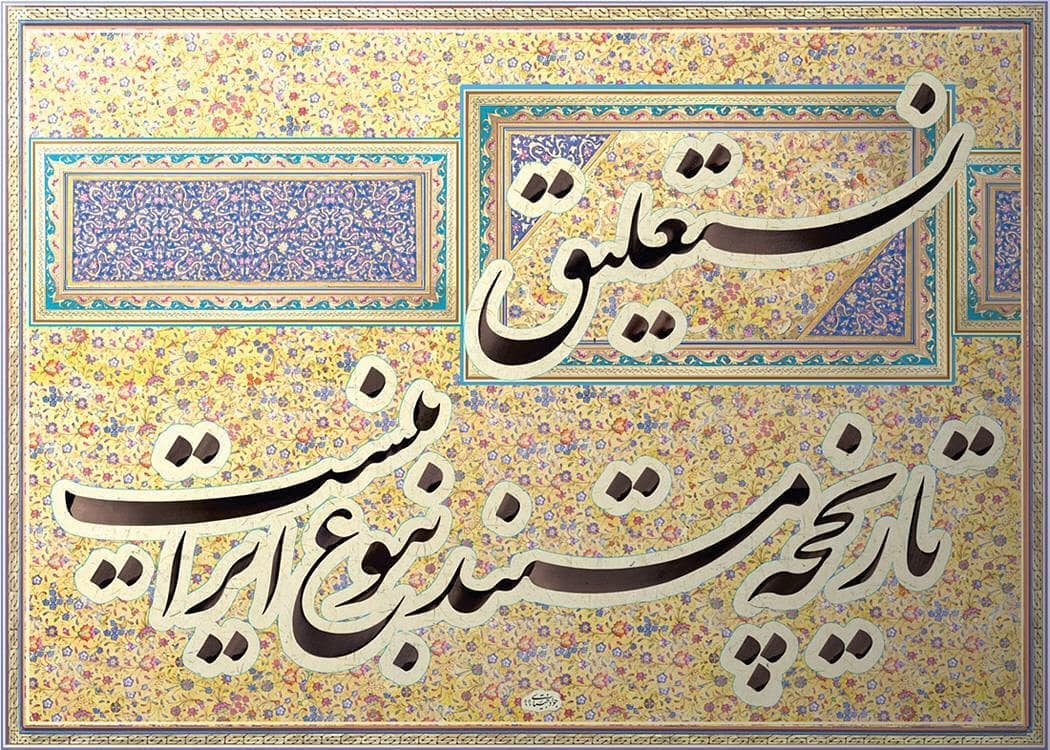 نستعلیق
تاریخچه مستند نبوغ ایرانیست